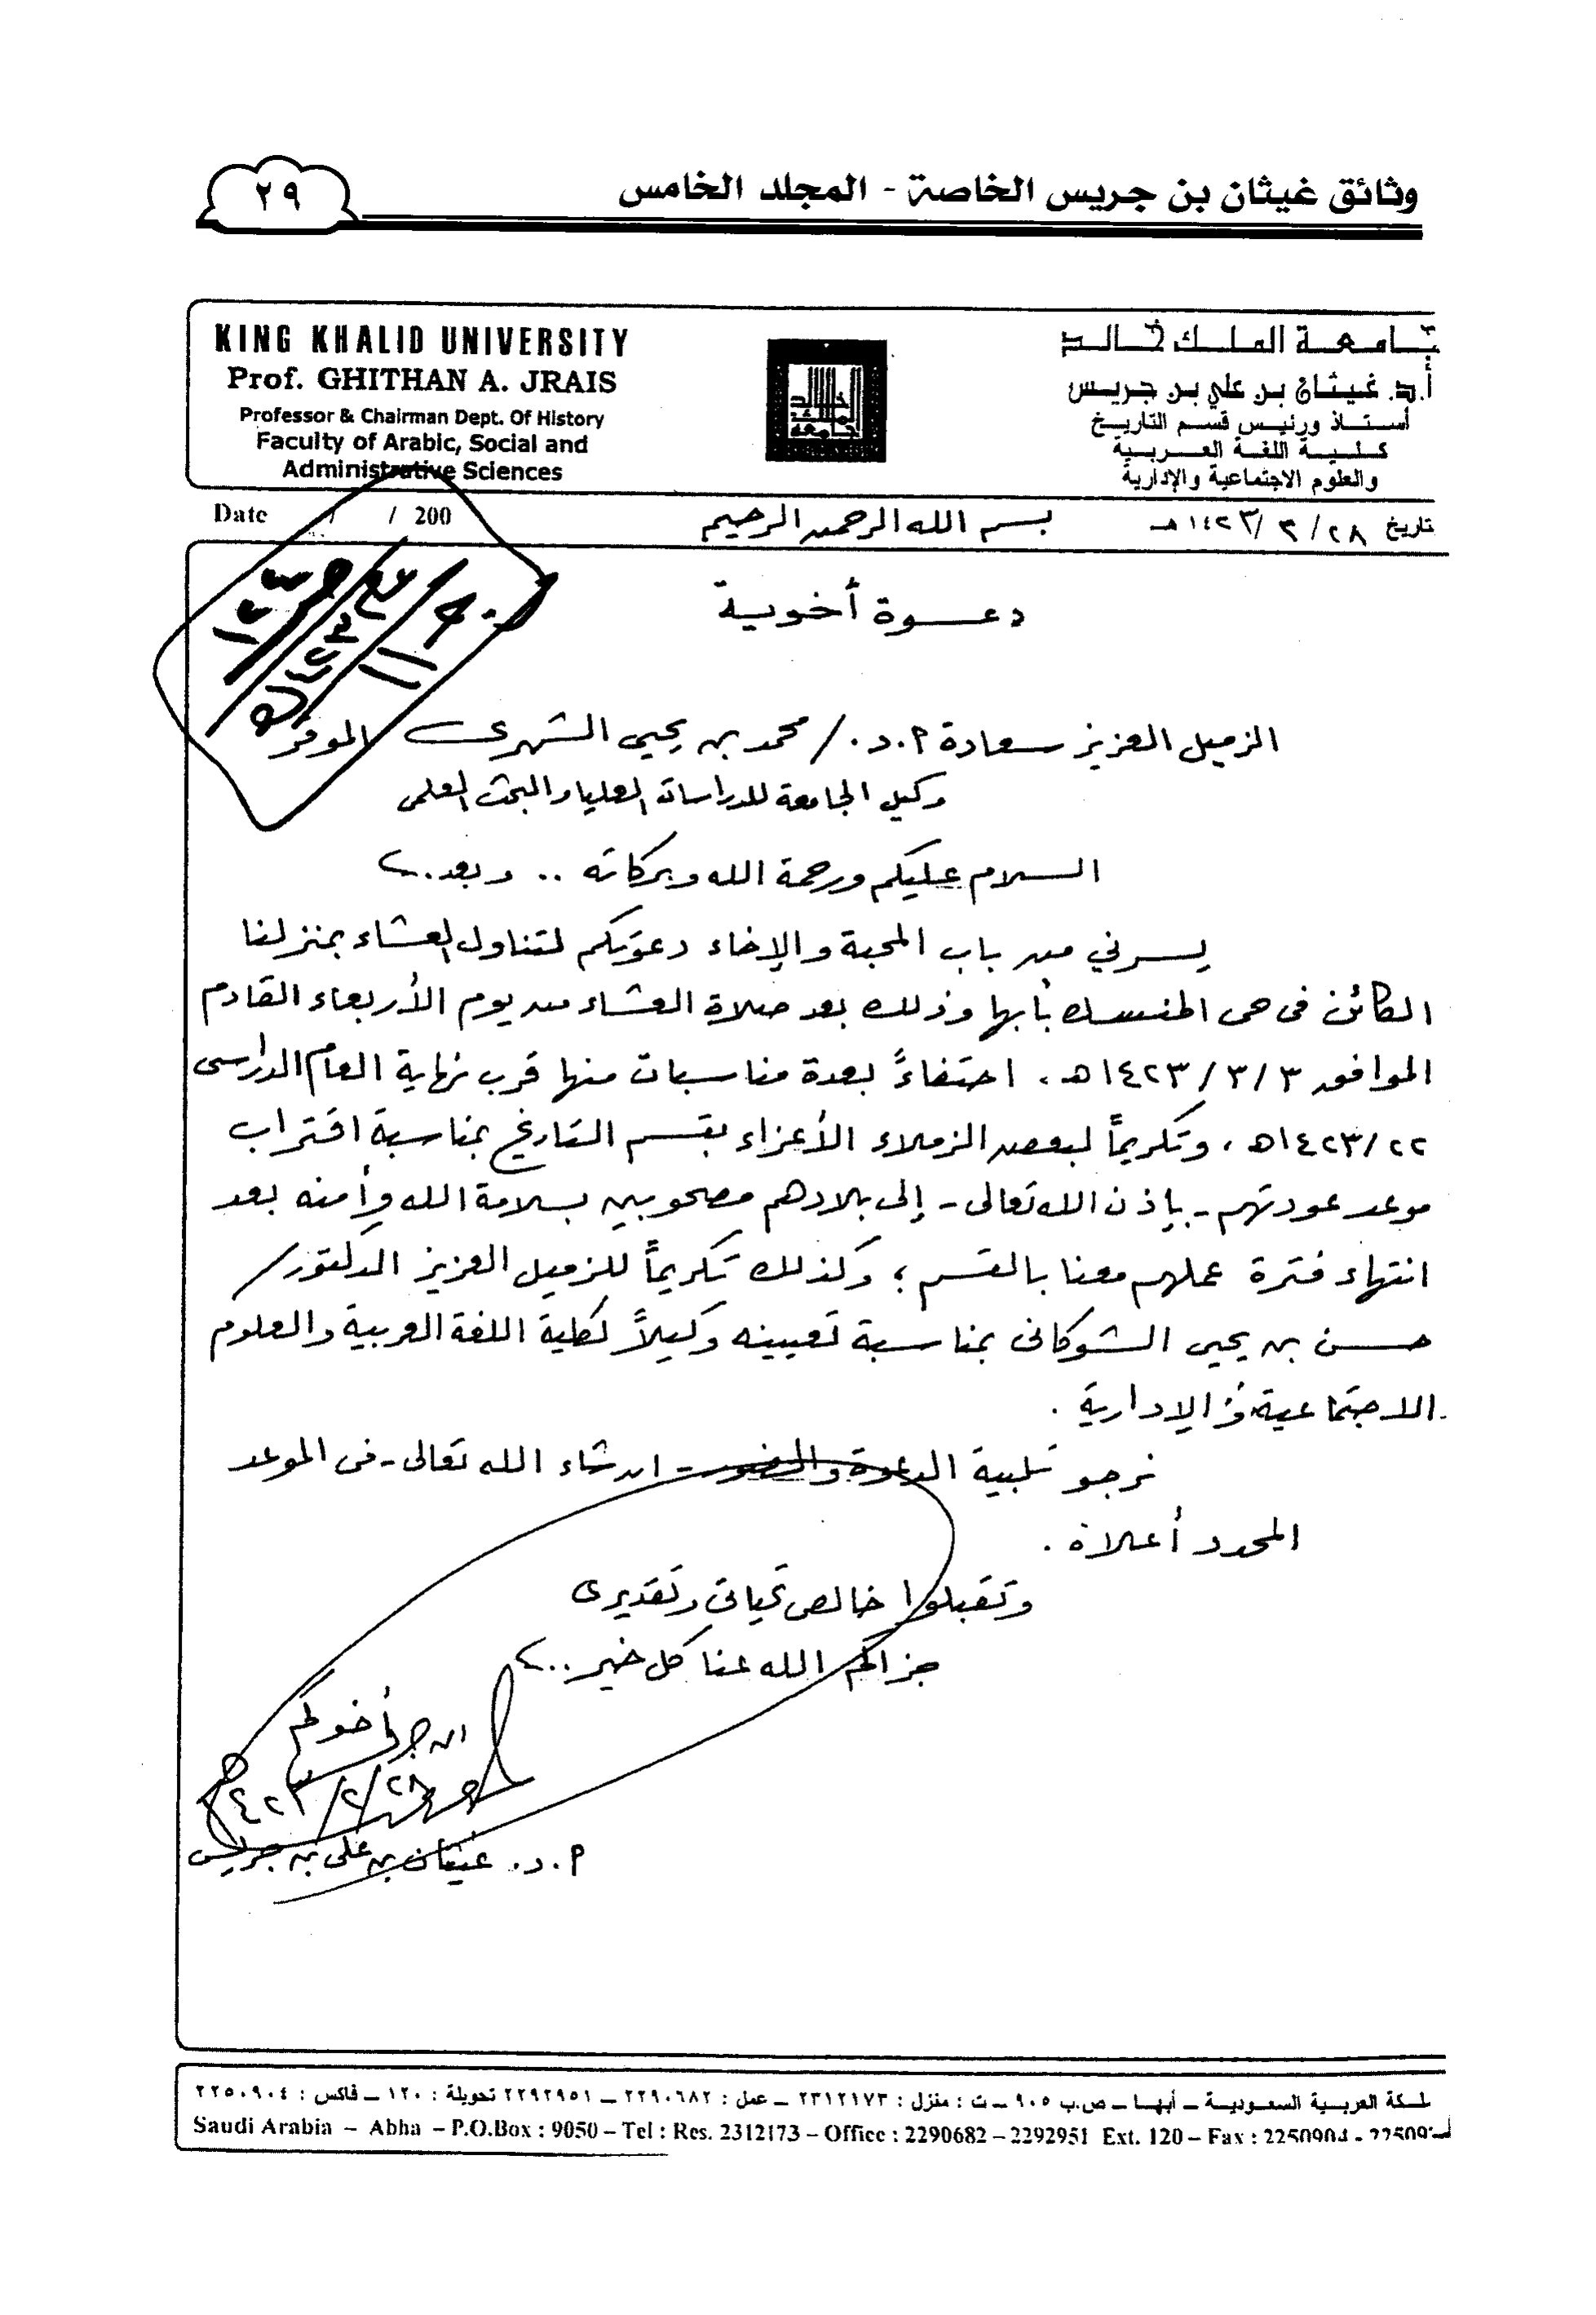 وثائق غيثان بن جريس الخاصة - المجلد الخامس
٢٩
KING KHALID UNIVERSITY
Prof. GHITHAN A. JRAIS
Professor & Chairman Dept. Of History
Faculty of Arabic, Social and
Administrative Sciences
جامعة الملك خالد
أ.د. غيثان بن علي بن جريس
أستاذ ورئيس قسم التاريخ
كلية اللغة العربية
والعلوم الاجتماعية والإدارية
Date / / 200
بسم الله الرحمن الرحيم
تاريخ ٢٨/ ٢ /١٤٢٣هـ
دعوة أخوية
الزميل العزيز سعادة أ.د./ محمد بن يحيى الشهري الموقر
وكيل الجامعة للدراسات العليا والبحث العلمي
السلام عليكم ورحمة الله وبركاته .. وبعد..
يسرني من باب المحبة والإخاء دعوتكم لتناول العشاء بمنزلنا
الكائن في حي المنسك بأبها وذلك بعد صلاة العشاء من يوم الأربعاء القادم
الموافق ١٤٢٣/٣/٣هـ، احتفاءً بعدة مناسبات منها قرب نهاية العام الدراسي
١٤٢٣/٢٢هـ، وتكريماً لبعض الزملاء الأعزاء بقسم التاريخ بمناسبة اقتراب
موعد عودتهم - بإذن الله تعالى - إلى بلادهم مصحوبين بسلامة الله وأمنه بعد
انتهاء فترة عملهم معنا بالقسم ؛ وكذلك تكريماً للزميل العزيز الدكتور/
حسن بن يحيى الشوكاني بمناسبة تعيينه وكيلاً لكلية اللغة العربية والعلوم
الاجتماعية والإدارية .
نرجو تلبية الدعوة والحضور - ان شاء الله تعالى - في الموعد
المحدد أعلاه .
وتقبلوا خالص تحياتي وتقديري
جزاكم الله عنا كل خير..
أخوكم
١٤٢٣/٢/٢٨هـ
أ.د. غيثان بن علي بن جريس
ملكة العربية السعودية – أبها – ص.ب ٩٠٥ – ت : منزل : ٢٣١٢١٧٣ – عمل : ٢٢٩٠٦٨٢ – ٢٢٩٢٩٥١ تحويلة : ١٢٠ – فاكس : ٢٢٥٠٩٠٤
Saudi Arabia – Abha – P.O.Box : 9050 – Tel : Res. 2312173 – Office : 2290682 – 2292951 Ext. 120 – Fax : 2250904